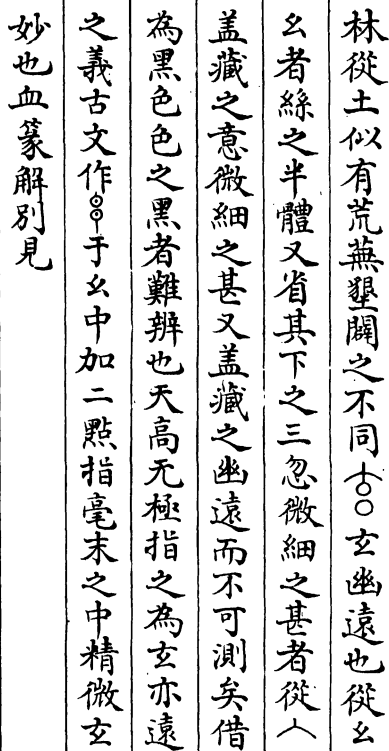 林從土似有荒蕪墾闢之不同玄幽遠也從幺
幺者絲之半體又省其下之三忽微細之甚者從
盖藏之意微細之甚又盖藏之幽遠而不可測矣借
為黑色色之黑者難辨也天高无極指之為玄亦遠
之義古文作于幺中加二點指毫末之中精微玄
妙也血篆解別見